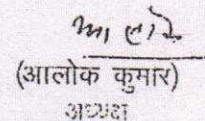 (आलोक कुमार)
अध्यक्ष